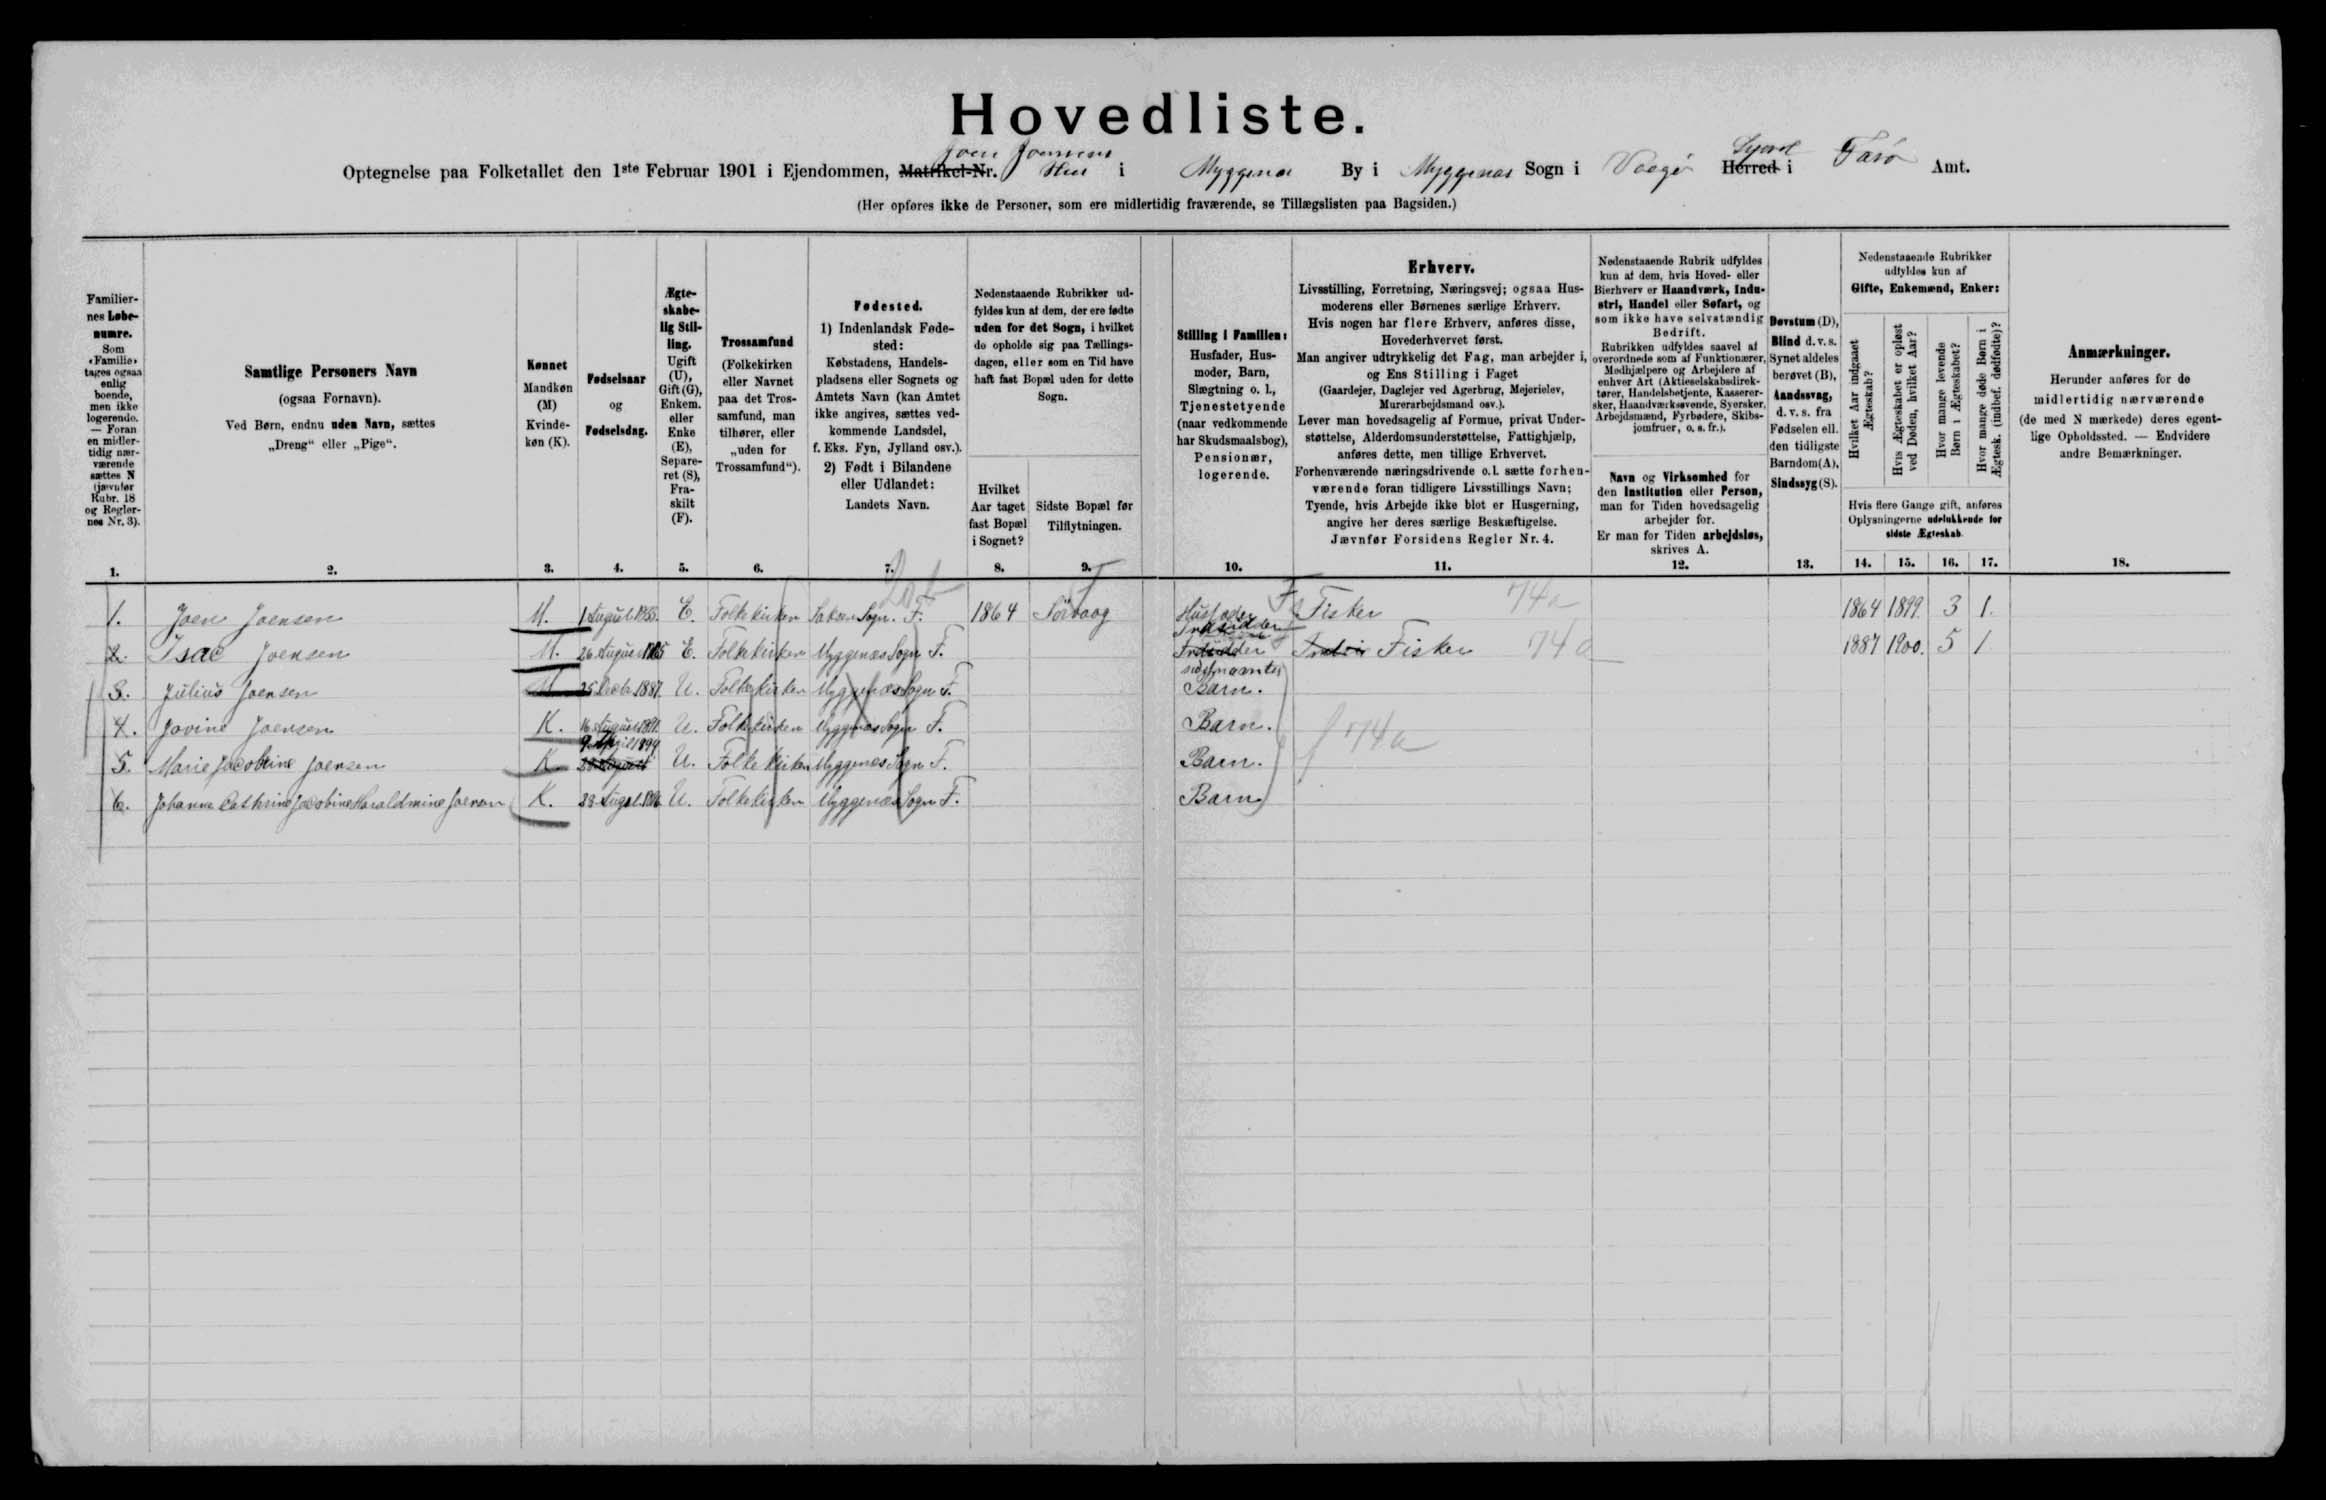 Hovedliste.
Optegnelse paa Folketallet den 1ste Februar 1901 i Ejendommen, Matrikel-Nr. Joen Joensens Hus i Myggenæs By i Myggenæs Sogn i Vaagø Herred Syssel i Færø Amt.
(Her opføres ikke de Personer, som ere midlertidig fraværende, se Tillægslisten paa Bagsiden.)
Familiernes Løbenumre.
Som «Familie» tages ogsaa enlig boende, men ikke logerende. — Foran en midlertidig nærværende sættes N (jævnfør Rubr. 18 og Reglernes Nr. 3).
1.
Samtlige Personers Navn
(ogsaa Fornavn).
Ved Børn, endnu uden Navn, sættes
„Dreng“ eller „Pige“.
2.
Kønnet
Mandkøn (M)
Kvindekøn (K).
3.
Fødselsaar
og
Fødselsdag.
4.
Ægteskabelig Stilling.
Ugift (U), Gift (G), Enkem. eller Enke (E), Separeret (S), Fraskilt (F).
5.
Trossamfund
(Folkekirken eller Navnet paa det Trossamfund, man tilhører, eller „uden for Trossamfund“).
6.
Fødested.
1) Indenlandsk Fødested:
Købstadens, Handelspladsens eller Sognets og Amtets Navn (kan Amtet ikke angives, sættes vedkommende Landsdel, f. Eks. Fyn, Jylland osv.).
2) Født i Bilandene eller Udlandet:
Landets Navn.
7.
Nedenstaaende Rubrikker udfyldes kun af dem, der ere fødte uden for det Sogn, i hvilket de opholde sig paa Tællingsdagen, eller som en Tid have haft fast Bopæl uden for dette Sogn.
Hvilket Aar taget fast Bopæl i Sognet?
8.
Sidste Bopæl før Tilflytningen.
9.
Stilling i Familien:
Husfader, Husmoder, Barn, Slægtning o. l., Tjenestetyende (naar vedkommende har Skudsmaalsbog), Pensionær, logerende.
10.
Erhverv.
Livsstilling, Forretning, Næringsvej; ogsaa Husmoderens eller Børnenes særlige Erhverv.
Hvis nogen har flere Erhverv, anføres disse, Hovederhvervet først.
Man angiver udtrykkelig det Fag, man arbejder i, og Ens Stilling i Faget
(Gaardejer, Daglejer ved Agerbrug, Mejerielev, Murerarbejdsmand osv.).
Lever man hovedsagelig af Formue, privat Understøttelse, Alderdomsunderstøttelse, Fattighjælp, anføres dette, men tillige Erhvervet.
Forhenværende næringsdrivende o.l. sætte forhenværende foran tidligere Livsstillings Navn;
Tyende, hvis Arbejde ikke blot er Husgerning, angive her deres særlige Beskæftigelse.
Jævnfør Forsidens Regler Nr. 4.
11.
Nedenstaaende Rubrik udfyldes kun af dem, hvis Hoved- eller Bierhverv er Haandværk, Industri, Handel eller Søfart, og som ikke have selvstændig Bedrift.
Rubrikken udfyldes saavel af overordnede som af Funktionærer, Medhjælpere og Arbejdere af enhver Art (Aktieselskabsdirektører, Handelsbetjente, Kasserersker, Haandværkssvende, Syersker, Arbejdsmænd, Fyrbødere, Skibsjomfruer, o. s. fr.).
Navn og Virksomhed for den Institution eller Person, man for Tiden hovedsagelig arbejder for.
Er man for Tiden arbejdsløs, skrives A.
12.
Døvstum (D), Blind d. v. s. Synet aldeles berøvet (B), Aandssvag, d. v. s. fra Fødselen ell. den tidligste Barndom (A), Sindssyg (S).
13.
Nedenstaaende Rubrikker udfyldes kun af
Gifte, Enkemænd, Enker:
Hvilket Aar indgaaet Ægteskab?
Hvis Ægteskabet er opløst ved Døden, hvilket Aar?
Hvor mange levende Børn i Ægteskabet?
Hvor mange døde Børn i Ægtesk. (indbef. dødfødte)?
Hvis flere Gange gift, anføres Oplysningerne udelukkende for sidste Ægteskab.
14. 15. 16. 17.
Anmærkninger.
Herunder anføres for de midlertidig nærværende (de med N mærkede) deres egentlige Opholdssted. — Endvidere andre Bemærkninger.
18.
1. Joen Joensen M. 1 August E. Folkekirken Sogn. F. 1864 Sörvaag Husfader Fisker 74a 1864 1899. 3 1.
2. Isac Joensen M. 26 August E. Folkekirken Myggenæs Sogn F. Indsidder Fisker 74a 1887 1900. 5 1
3. Julius Joensen M. 25 1887. U. Folkekirken Myggenæs Sogn F. Barn.
4. Jovine Joensen K. 16 August U. Folkekirken Myggenæs Sogn F. Barn. 74a
5. Marie Jacobine Joensen K. 9 April 1899 U. Folkekirken Myggenæs Sogn F. Barn.
6. Johanne Cathrine Jacobine Haraldmine Joensen K. 28 August U. Folkekirken Myggenæs Sogn F. Barn